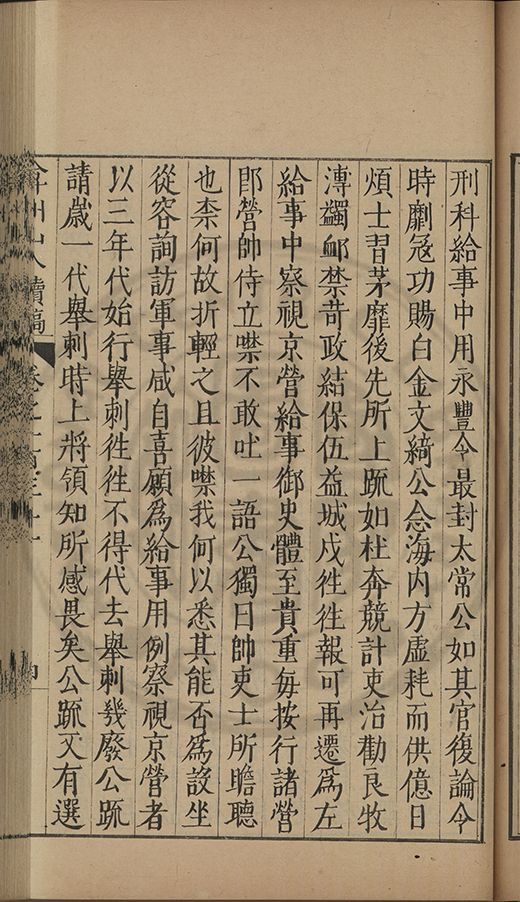 刑科給事中用永豐令最封太常公如其官復論令
時勦寇功賜白金文綺公念海內方虛耗而供億日
煩士習茅靡後先所上疏如杜奔競計吏治勸良牧
溥蠲卹禁苛政結保伍益城戍徃徃報可再遷為左
給事中察視京營給事御史體至貴重每按行諸營
卽營帥侍立噤不敢吐一語公獨曰帥吏士所瞻聽
也柰何故折輕之且彼噤我何以悉其能否為設坐
從容詢訪軍事咸自喜願為給事用例察視京營者
以三年代始行舉刺徃徃不得代去舉刺幾廢公疏
請歲一代舉刺時上將領知所感畏矣公疏又有選
弇州山人續稿 卷之一百三十